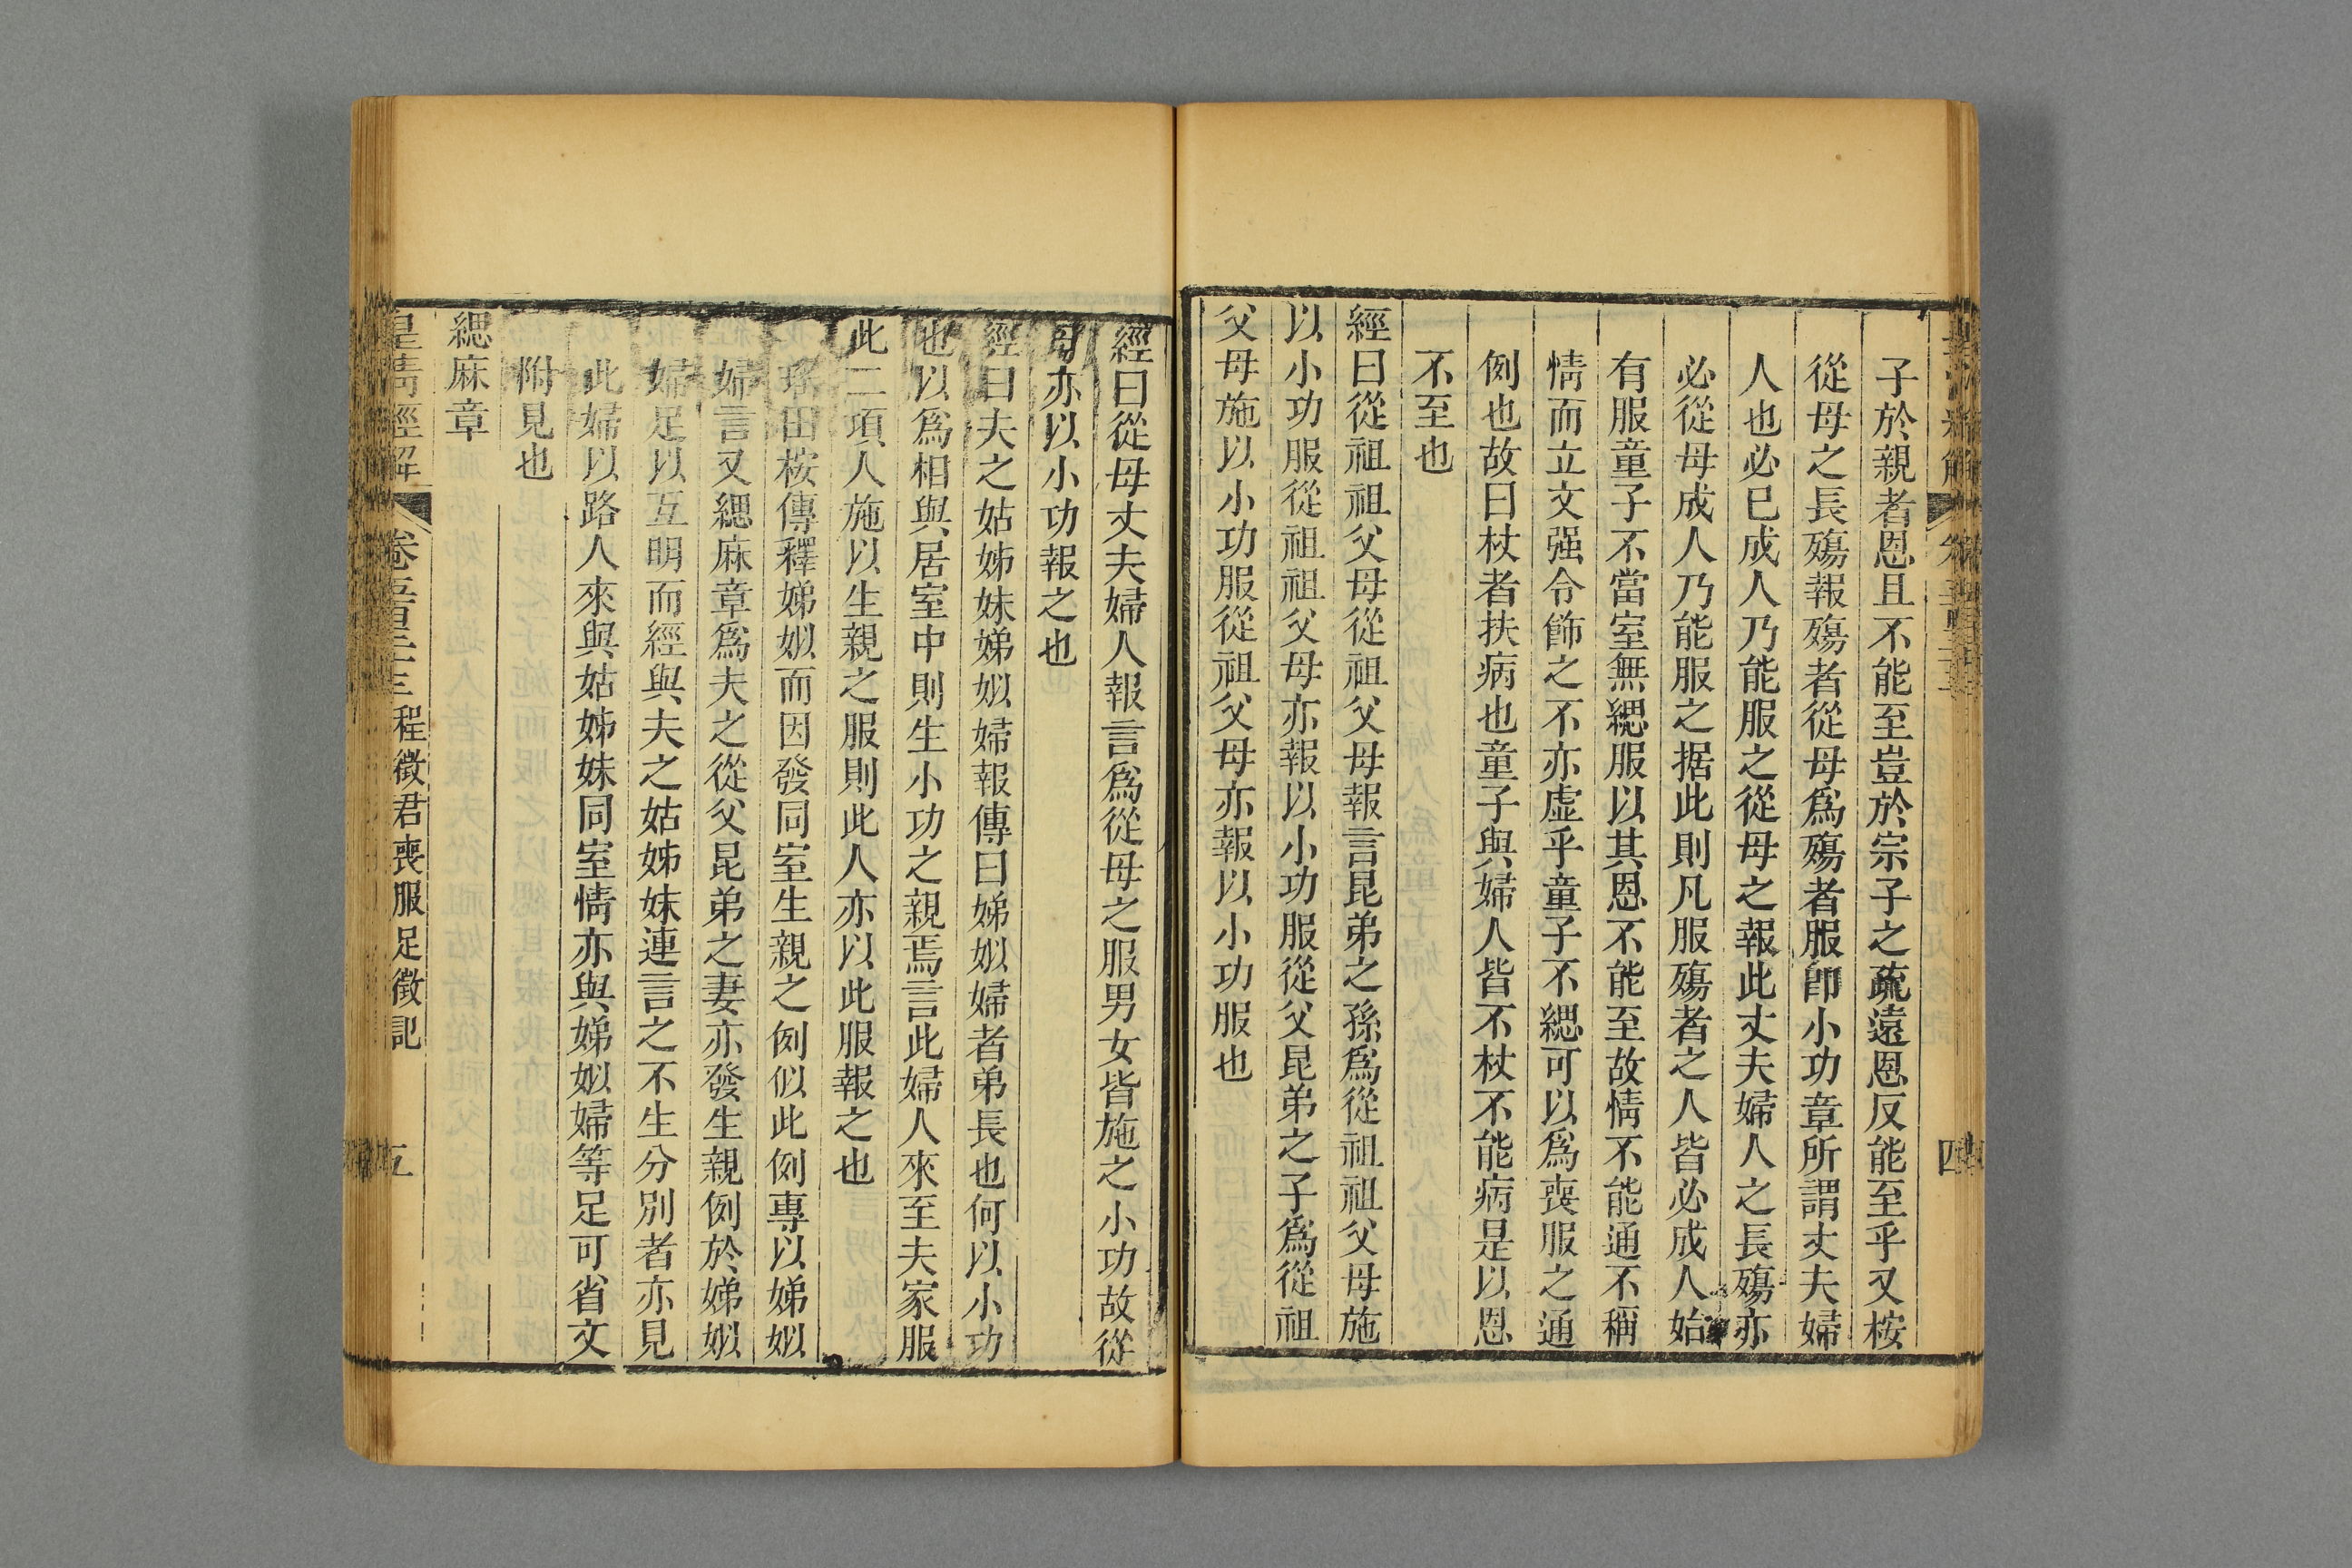 子於親者恩且不能至豈於宗子之疏遠恩反能至乎又桉
從母之長殤報殤者從母爲殤者服卽小功章所謂丈夫婦
人也必已成人乃能服之從母之報此丈夫婦人之長殤亦
必從母成人乃能服之据此則凡服殤者之人皆必成人始
有服童子不當室無緦服以其恩不能至故情不能通不稱
情而立文强令飾之不亦虛乎童子不緦可以爲喪服之通
例也故曰杖者扶病也童子與婦人皆不杖不能病是以恩
不至也
經曰從祖祖父母從祖父母報言昆弟之孫爲從祖祖父母施
以小功服從祖祖父母亦報以小功服從父昆弟之子爲從祖
父母施以小功服從祖父母亦報以小功服也
經曰從母丈夫婦人報言爲從母之服男女皆施之小功故從
母亦以小功報之也
經曰夫之姑姊妹娣姒婦報傳曰娣姒婦者弟長也何以小功
也以爲相與居室中則生小功之親焉言此婦人來至夫家服
此二項人施以生親之服則此人亦以此服報之也
瑤田桉傳釋娣姒而因發同室生親之例似此例專以娣姒
婦言又緦麻章爲夫之從父昆弟之妻亦發生親例於娣姒
婦足以互明而經與夫之姑姊妹連言之不生分別者亦見
此婦以路人來與姑姊妹同室情亦與娣姒婦等足可省文
附見也
緦麻章
皇清經解 卷五百三十三 程徵君喪服足徵記 五